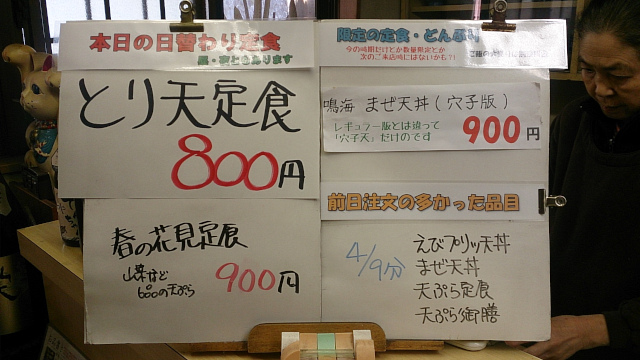 本日の日替わり定食
昼・夜ともあります
とり天定食
800円
春の花見定食
山菜など
の天ぷら
900円
限定の定食・どんぶり
今の時期だけとか数量限定とか
次のご来店時にはないかも?!
鳴海 まぜ天丼(穴子版)
レギュラー版とは違って
「穴子天」だけのです
900円
前日注文の多かった品目
4/9分
えびプリッ天丼
まぜ天丼
天ぷら定食
天ぷら御膳